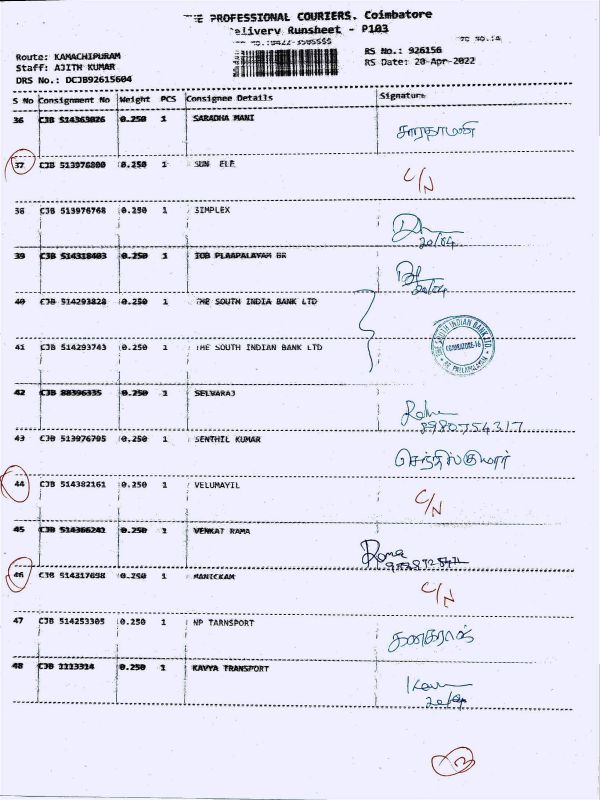 THE PROFESSIONAL COURIERS. Coimbatore
Delivery Runsheet - P103
Route: KAMACHIPURAM
RS No.: 926156
Staff: AJITH KUMAR
RS Date: 20-Apr-2022
DRS No.: DCJB92615604
S No Consignment No Weight PCS Consignee Details Signature
36 CJB 514363026 0.250 1 SARADHA MANI சாரதாமணி
37 CJB 513976800 0.250 1 SUN ELE C/N
38 CJB 513976768 0.250 1 SIMPLEX 20/04
39 CJB 514318403 0.250 1 IOB PLAAPALAYAM BR 20/04
40 CJB 514293828 0.250 1 THE SOUTH INDIA BANK LTD
THE SOUTH INDIAN BANK LTD.
41 CJB 514293743 0.250 1 THE SOUTH INDIAN BANK LTD
42 CJB 88396335 0.250 1 SELVARAJ
8980754317
43 CJB 513976795 0.250 1 SENTHIL KUMAR செந்தில்குமார்
44 CJB 514382161 0.250 1 VELUMAYIL C/N
45 CJB 514366241 0.250 1 VENKAT RAMA Rama
46 CJB 514317698 0.250 1 MANICKAM C/N
47 CJB 514253305 0.250 1 NP TARNSPORT கனகராஜ்
48 CJB 1113314 0.250 1 KAVYA TRANSPORT